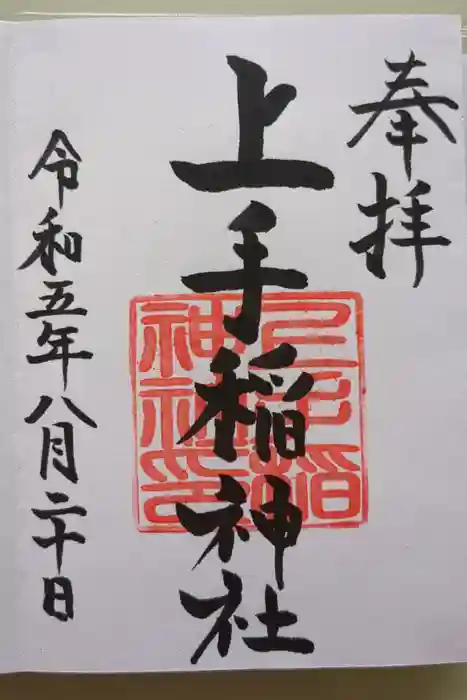 奉拝
上手稲神社
上手稲
神社印
令和五年八月二十日